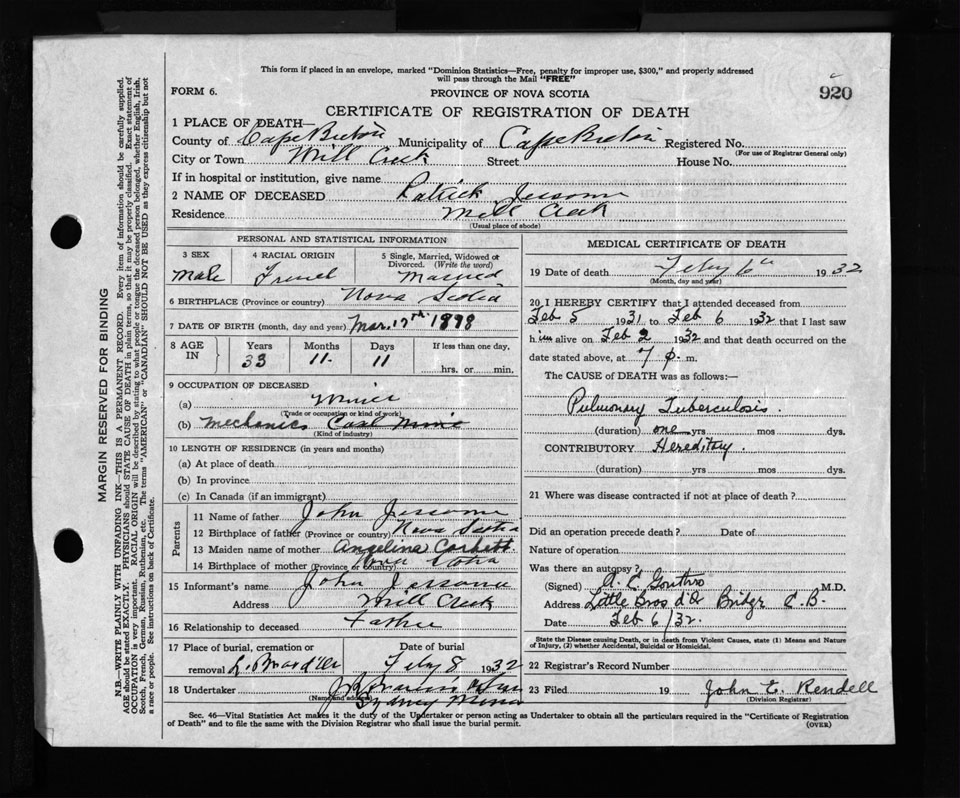 This form if placed in an envelope, marked "Dominion Statistics—Free, penalty for improper use, $300," and properly addressed
will pass through the Mail "FREE"
FORM 6.
PROVINCE OF NOVA SCOTIA
920
CERTIFICATE OF REGISTRATION OF DEATH
1 PLACE OF DEATH—
County of Cape Breton Municipality of Cape Breton Registered No.
(For use of Registrar General only)
City or Town Mill Creek Street House No.
If in hospital or institution, give name
2 NAME OF DECEASED Patrick Jessome
Residence Mill Creek
(Usual place of abode)
PERSONAL AND STATISTICAL INFORMATION
3 SEX 4 RACIAL ORIGIN 5 Single, Married, Widowed or
Divorced. (Write the word)
Male French Married
6 BIRTHPLACE (Province or country) Nova Scotia
7 DATE OF BIRTH (month, day and year) Mar. 17th 1898
8 AGE IN Years Months Days If less than one day,
33 11 11 hrs. or min.
9 OCCUPATION OF DECEASED
(a) Miner
(Trade or occupation or kind of work)
(b) Mechanics Coal Mine
(Kind of industry)
10 LENGTH OF RESIDENCE (in years and months)
(a) At place of death
(b) In province
(c) In Canada (if an immigrant)
Parents
11 Name of father John Jessome
12 Birthplace of father (Province or country) Nova Scotia
13 Maiden name of mother Angelina Corbett
14 Birthplace of mother (Province or country) Nova Scotia
15 Informant's name John Jessome
Address Mill Creek
16 Relationship to deceased Father
17 Place of burial, cremation or Date of burial
removal L. Bras d'Or Feby 8 1932
18 Undertaker
(Name and address)
Sydney Mines
MEDICAL CERTIFICATE OF DEATH
19 Date of death Feby 6th 1932
(Month, day and year)
20 I HEREBY CERTIFY that I attended deceased from
Feb 5 1931 to Feb 6 1932 that I last saw
him alive on Feb 2 1932 and that death occurred on the
date stated above, at 7 p. m.
The CAUSE of DEATH was as follows:—
Pulmonary Tuberculosis.
(duration) one yrs mos dys.
CONTRIBUTORY Hereditary.
(duration) yrs mos dys.
21 Where was disease contracted if not at place of death?
Did an operation precede death? Date of
Nature of operation
Was there an autopsy?
(Signed) A. L. Gouthro M.D.
Address Little Bras d'Or Bridge C.B.
Date Feb 6/32.
State the Disease causing Death, or in death from Violent Causes, state (1) Means and Nature
of Injury, (2) whether Accidental, Suicidal or Homicidal.
22 Registrar's Record Number
23 Filed 19 John E. Rendell
(Division Registrar)
Sec. 46—Vital Statistics Act makes it the duty of the Undertaker or person acting as Undertaker to obtain all the particulars required in the "Certificate of Registration
of Death" and to file the same with the Division Registrar who shall issue the burial permit. (OVER)
MARGIN RESERVED FOR BINDING
N.B.—WRITE PLAINLY WITH UNFADING INK—THIS IS A PERMANENT RECORD. Every item of information should be carefully supplied.
AGE should be stated EXACTLY. PHYSICIANS should STATE CAUSE OF DEATH in plain terms, so that it may be properly classified. Exact statement of
OCCUPATION is very important. RACIAL ORIGIN will be described by stating to what people or tongue the deceased person belonged, whether English, Irish,
Scotch, French, German, Russian, Ruthenian, etc. The terms "AMERICAN" or "CANADIAN" SHOULD NOT BE USED as they express citizenship but not
a race or people. See instructions on back of Certificate.